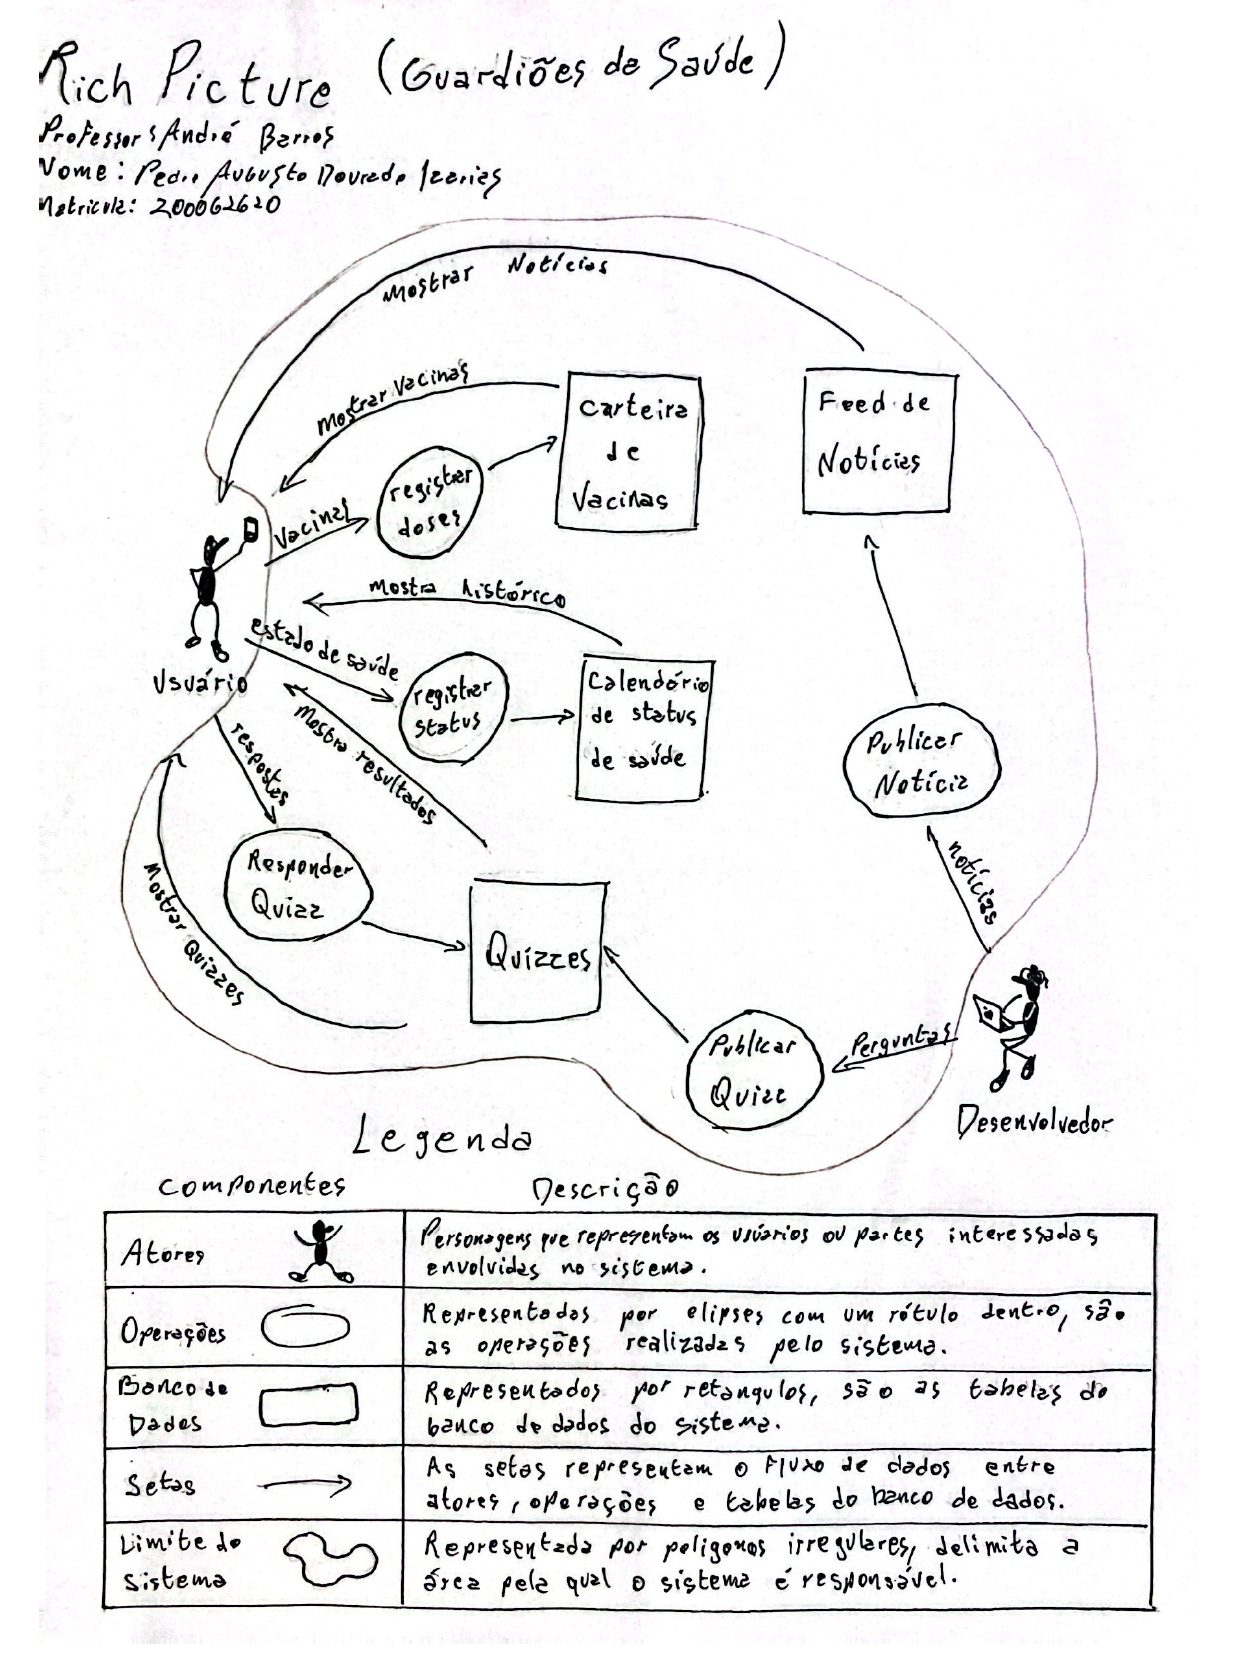 Rich Picture (Guardiões de Saúde)
Professor: André Barros
Nome: Pedro Augusto Dourado Izarias
Matricula: 200062620
Mostrar Notícias
Mostrar Vacinas
Carteira
de
Vacinas
Feed de
Notícias
registrar
doses
Vacinas
Mostra histórico
estado de saúde
Usuário
registrar
status
Calendário
de status
de saúde
Mostra resultados
respostas
Publicar
Notícia
notícias
Responder
Quizz
Mostrar Quizzes
Quizzes
Publicar
Quizz
Perguntas
Desenvolvedor
Legenda
Componentes Descrição
Atores
Personagens que representam os usuários ou partes interessadas
envolvidas no sistema.
Operações
Representadas por elipses com um rótulo dentro, são
as operações realizadas pelo sistema.
Banco de
Dados
Representados por retangulos, são as tabelas do
banco de dados do sistema.
Setas
As setas representam o Fluxo de dados entre
atores, operações e tabelas do banco de dados.
Limite do
sistema
Representada por poligonos irregulares, delimita a
área pela qual o sistema é responsável.